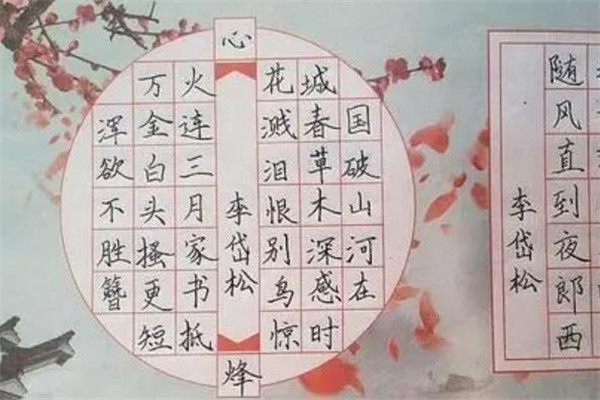 随风直到夜郎西
李岱松
国破山河在
城春草木深感时
花溅泪恨别鸟惊
心
烽
火连三月家书抵
万金白头搔更短
浑欲不胜簪
李岱松